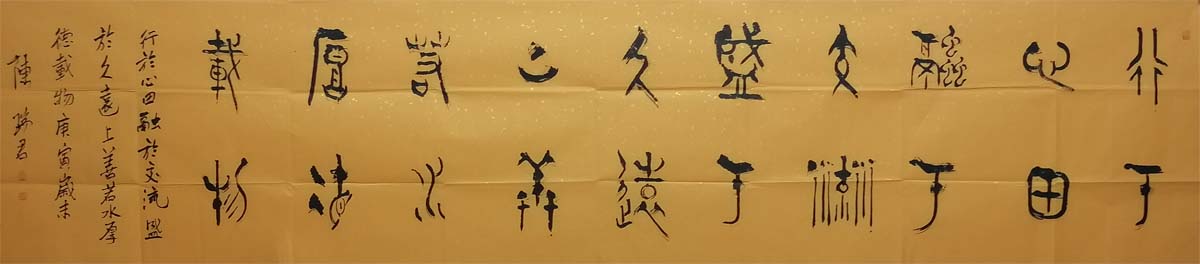 行于
心田
融于
交流
盛于
久遠
上善
若水
厚德
載物
行於心田融於交流盛
於久遠上善若水厚
德載物庚寅歲末
陳君